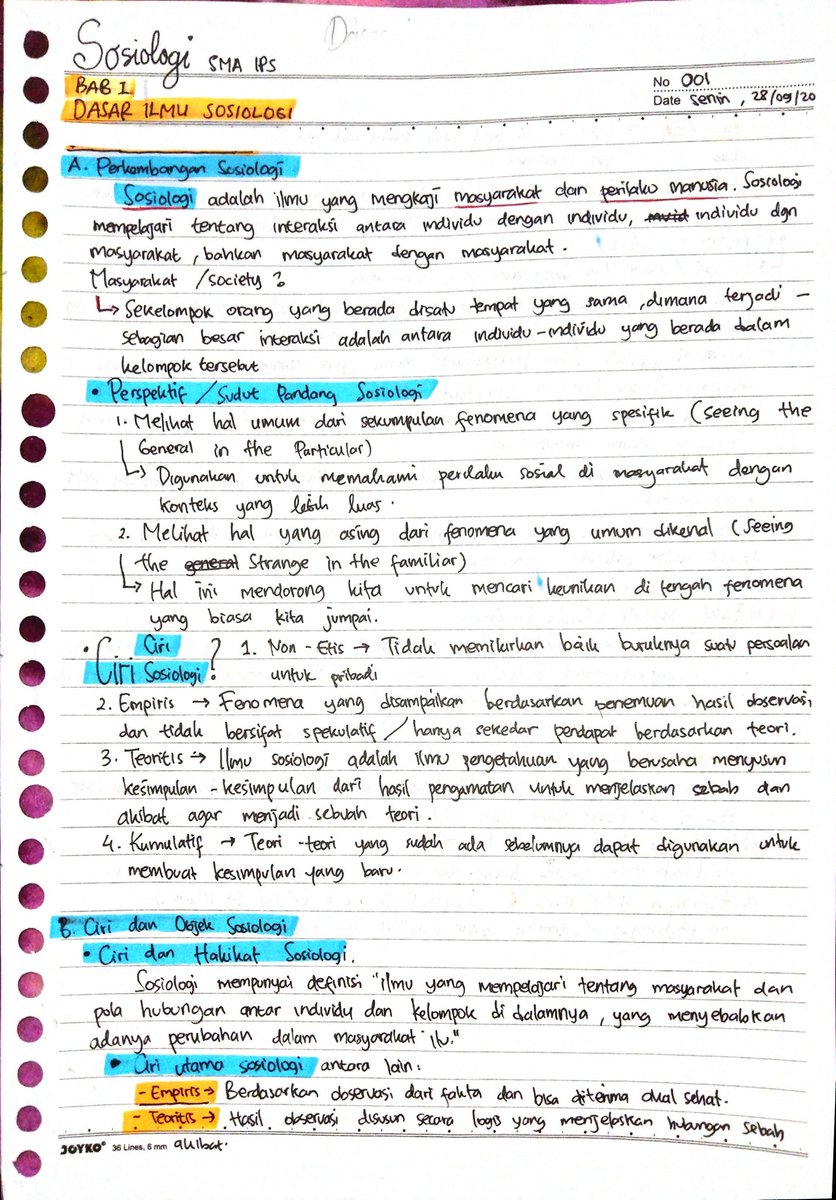 Sosiologi SMA IPS
No 001
Date Senin, 28/09/20
BAB 1
DASAR ILMU SOSIOLOGI
A. Perkembangan Sosiologi
Sosiologi adalah ilmu yang mengkaji masyarakat dan perilaku manusia. Sosiologi
mempelajari tentang interaksi antara individu dengan individu, individu dgn
masyarakat, bahkan masyarakat dengan masyarakat.
Masyarakat /society?
↳ Sekelompok orang yang berada disatu tempat yang sama, dimana terjadi -
sebagian besar interaksi adalah antara individu-individu yang berada dalam
kelompok tersebut
• Perspektif / Sudut Pandang Sosiologi
1. Melihat hal umum dari sekumpulan fenomena yang spesifik (seeing the
General in the Particular)
↳ Digunakan untuk memahami perilaku sosial di masyarakat dengan
konteks yang lebih luas.
2. Melihat hal yang asing dari fenomena yang umum dikenal (seeing
the general Strange in the familiar)
↳ Hal ini mendorong kita untuk mencari keunikan di tengah fenomena
yang biasa kita jumpai.
• Ciri Ciri Sosiologi?
1. Non-Etis → Tidak memikirkan baik buruknya suatu persoalan
untuk pribadi
2. Empiris → Fenomena yang disampaikan berdasarkan penemuan hasil observasi
dan tidak bersifat spekulatif / hanya sekedar pendapat berdasarkan teori.
3. Teoritis → Ilmu sosiologi adalah ilmu pengetahuan yang berusaha menyusun
kesimpulan-kesimpulan dari hasil pengamatan untuk menjelaskan sebab dan
akibat agar menjadi sebuah teori.
4. Kumulatif → Teori-teori yang sudah ada sebelumnya dapat digunakan untuk
membuat kesimpulan yang baru.
B. Ciri dan Objek Sosiologi
• Ciri dan Hakikat Sosiologi.
Sosiologi mempunyai definisi "ilmu yang mempelajari tentang masyarakat dan
pola hubungan antar individu dan kelompok di dalamnya, yang menyebabkan
adanya perubahan dalam masyarakat itu."
• Ciri utama sosiologi antara lain:
- Empiris → Berdasarkan observasi dari fakta dan bisa diterima akal sehat.
- Teoritis → Hasil observasi disusun secara logis yang menjelaskan hubungan sebab
akibat.
JOYKO® 36 Lines, 6 mm